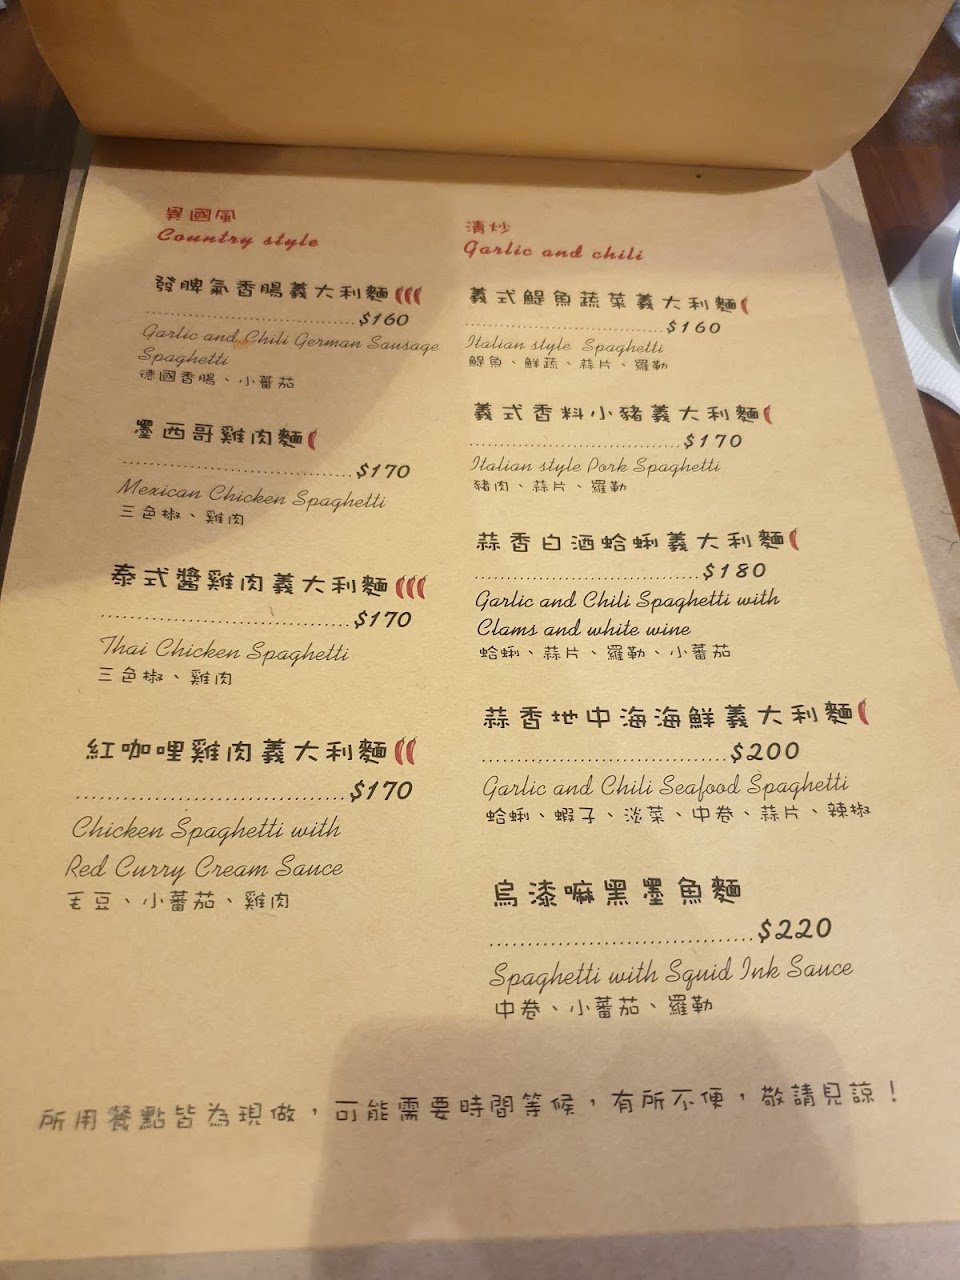 異國風
Country style
發脾氣香腸義大利麵
$160
Garlic and Chili German Sausage
Spaghetti
德國香腸、小蕃茄
墨西哥雞肉麵
$170
Mexican Chicken Spaghetti
三色椒、雞肉
泰式醬雞肉義大利麵
$170
Thai Chicken Spaghetti
三色椒、雞肉
紅咖哩雞肉義大利麵
$170
Chicken Spaghetti with
Red Curry Cream Sauce
毛豆、小蕃茄、雞肉
清炒
Garlic and chili
義式鯷魚蔬菜義大利麵
$160
Italian style Spaghetti
鯷魚、鮮蔬、蒜片、羅勒
義式香料小豬義大利麵
$170
Italian style Pork Spaghetti
豬肉、蒜片、羅勒
蒜香白酒蛤蜊義大利麵
$180
Garlic and Chili Spaghetti with
Clams and white wine
蛤蜊、蒜片、羅勒、小蕃茄
蒜香地中海海鮮義大利麵
$200
Garlic and Chili Seafood Spaghetti
蛤蜊、蝦子、淡菜、中卷、蒜片、辣椒
烏漆嘛黑墨魚麵
$220
Spaghetti with Squid Ink Sauce
中卷、小蕃茄、羅勒
所用餐點皆為現做，可能需要時間等候，有所不便，敬請見諒！